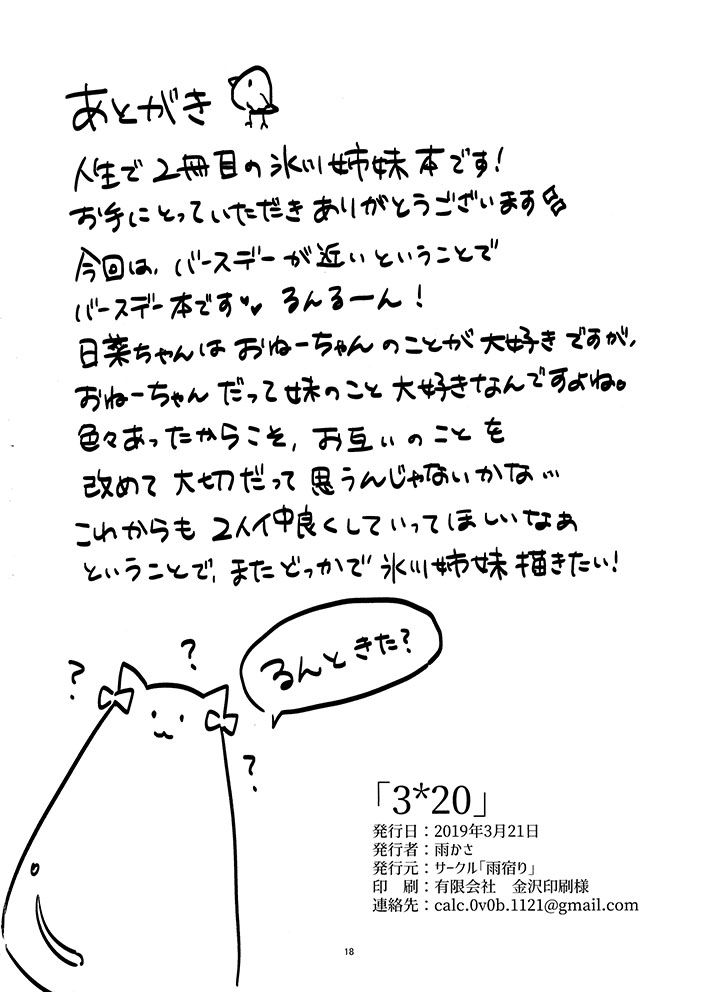 あとがき
人生で2冊目の氷川姉妹本です!
お手にとっていただきありがとうございます
今回は、バースデーが近いということで
バースデー本です♥♥ るんるーん!
日菜ちゃんはおねーちゃんのことが大好きですが、
おねーちゃんだって妹のこと大好きなんですよね。
色々あったからこそ、お互いのことを
改めて大切だって思うんじゃないかな…
これからも2人仲良くしていってほしいなぁ
ということで、またどっかで氷川姉妹描きたい!
るんときた?
?
?
?
「3*20」
発行日：2019年3月21日
発行者：雨かさ
発行元：サークル「雨宿り」
印　刷：有限会社　金沢印刷様
連絡先：calc.0v0b.1121@gmail.com
18